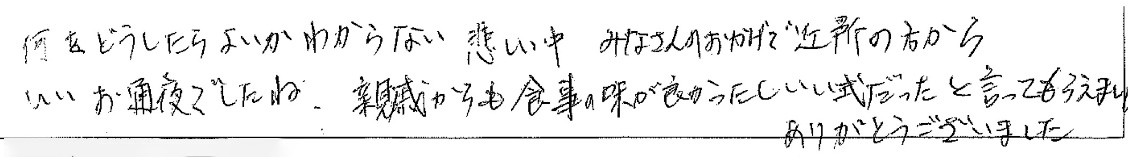 何をどうしたらよいかわからない 悲しい中 みなさんのおかげで近所の方から
いいお通夜でしたね. 親戚からも食事の味が良かったしいい式だったと言ってもらえまし
ありがとうございました